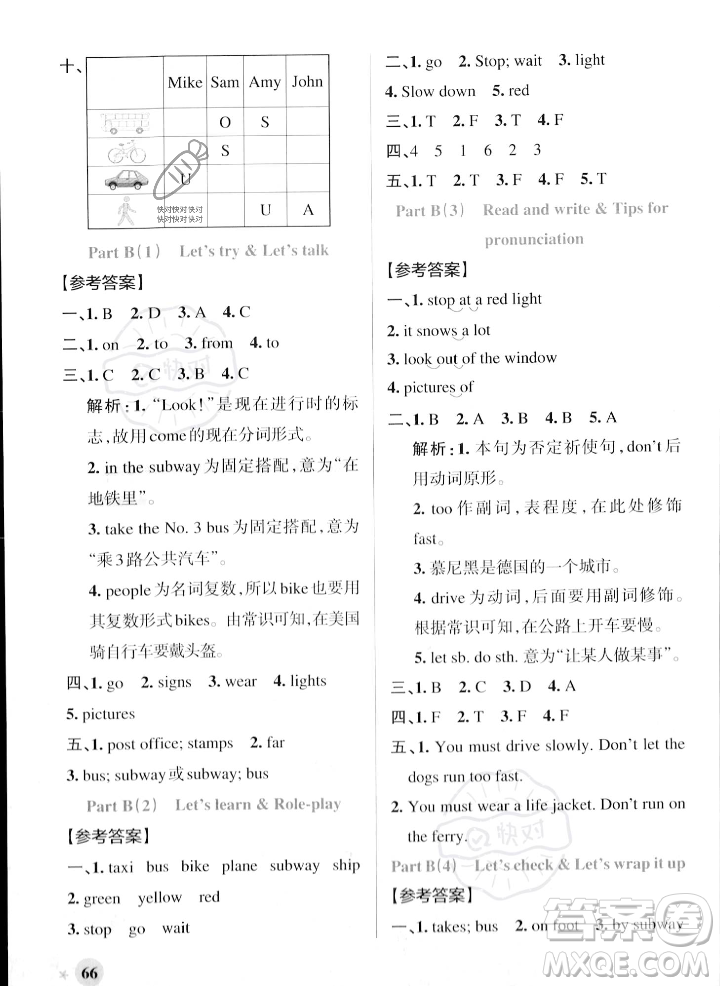 十、
Mike Sam Amy John
O S
S
U
快对快对快对
快对快对快对
U A
Part B(1) Let's try & Let's talk
【参考答案】
一、1. B 2. D 3. A 4. C
二、1. on 2. to 3. from 4. to
三、1. C 2. C 3. A 4. C
解析：1. “Look!”是现在进行时的标
志，故用come的现在分词形式。
2. in the subway为固定搭配，意为“在
地铁里”。
3. take the No. 3 bus为固定搭配，意为
“乘3路公共汽车”。
4. people为名词复数，所以bike也要用
其复数形式bikes。由常识可知，在美国
骑自行车要戴头盔。
四、1. go 2. signs 3. wear 4. lights
5. pictures
五、1. post office; stamps 2. far
3. bus; subway或subway; bus
Part B(2) Let's learn & Role-play
【参考答案】
一、1. taxi bus bike plane subway ship
2. green yellow red
3. stop go wait
66
二、1. go 2. Stop; wait 3. light
4. Slow down 5. red
三、1. T 2. F 3. F 4. T
四、4 5 1 6 2 3
五、1. T 2. T 3. F 4. F 5. T
Part B(3) Read and write & Tips for
pronunciation
【参考答案】
一、1. stop at a red light
2. it snows a lot
3. look out of the window
4. pictures of
二、1. B 2. A 3. B 4. B 5. A
解析：1. 本句为否定祈使句，don't后
用动词原形。
2. too作副词，表程度，在此修饰
fast。
3. 慕尼黑是德国的一个城市。
4. drive为动词，后面应用副词修饰。
根据常识可知，在公路上开车要慢。
5. let sb. do sth. 意为“让某人做某事”。
三、1. B 2. C 3. D 4. A
四、1. F 2. F 3. T 4. T
五、1. You must drive slowly. Don't let the
dogs run too fast.
2. You must wear a life jacket. Don't run on
the ferry.
快对
Part B(4) Let's check & Let's wrap it up
【参考答案】
一、1. takes; bus 2. on foot 3. by subway
答案圈
MXQE.COM